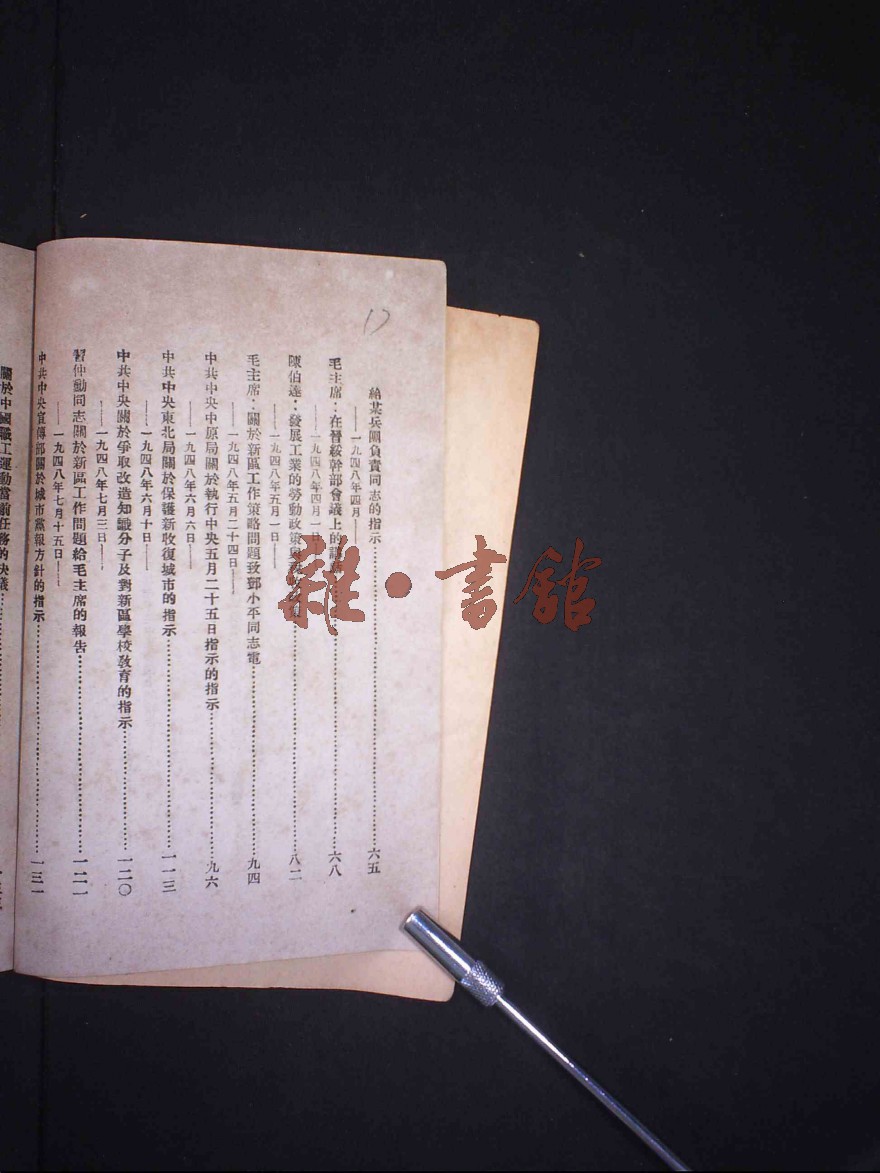 17
給某兵團負責同志的指示……六五
——一九四八年四月——
毛主席：在晉綏幹部會議上的……六八
——一九四八年四月一日——
陳伯達：發展工業的勞動政策……八二
——一九四八年五月一日——
毛主席：關於新區工作策略問題致鄧小平同志電……九四
——一九四八年五月二十四日——
中共中央中原局關於執行中央五月二十五日指示的指示……九六
——一九四八年六月六日——
中共中央東北局關於保護新收復城市的指示……一一三
——一九四八年六月十日——
中共中央關於爭取改造知識分子及對新區學校教育的指示……一二〇
——一九四八年七月三日——
習仲勳同志關於新區工作問題給毛主席的報告……一二一
——一九四八年七月十五日——
中共中央宣傳部關於城市黨報方針的指示……一三一
關於中國職工運動當前任務的決議……
雜·書館